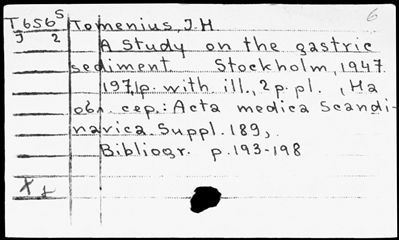 6
T656 S Tomenius, J.H
J 2
A study on the gastric
sediment. Stockholm, 1947
197,1p. with ill., 2p. pl. , (На
обл. сер.: Acta medica Scandi-
navica. Suppl. 189,
Bibliogr. p. 193-198